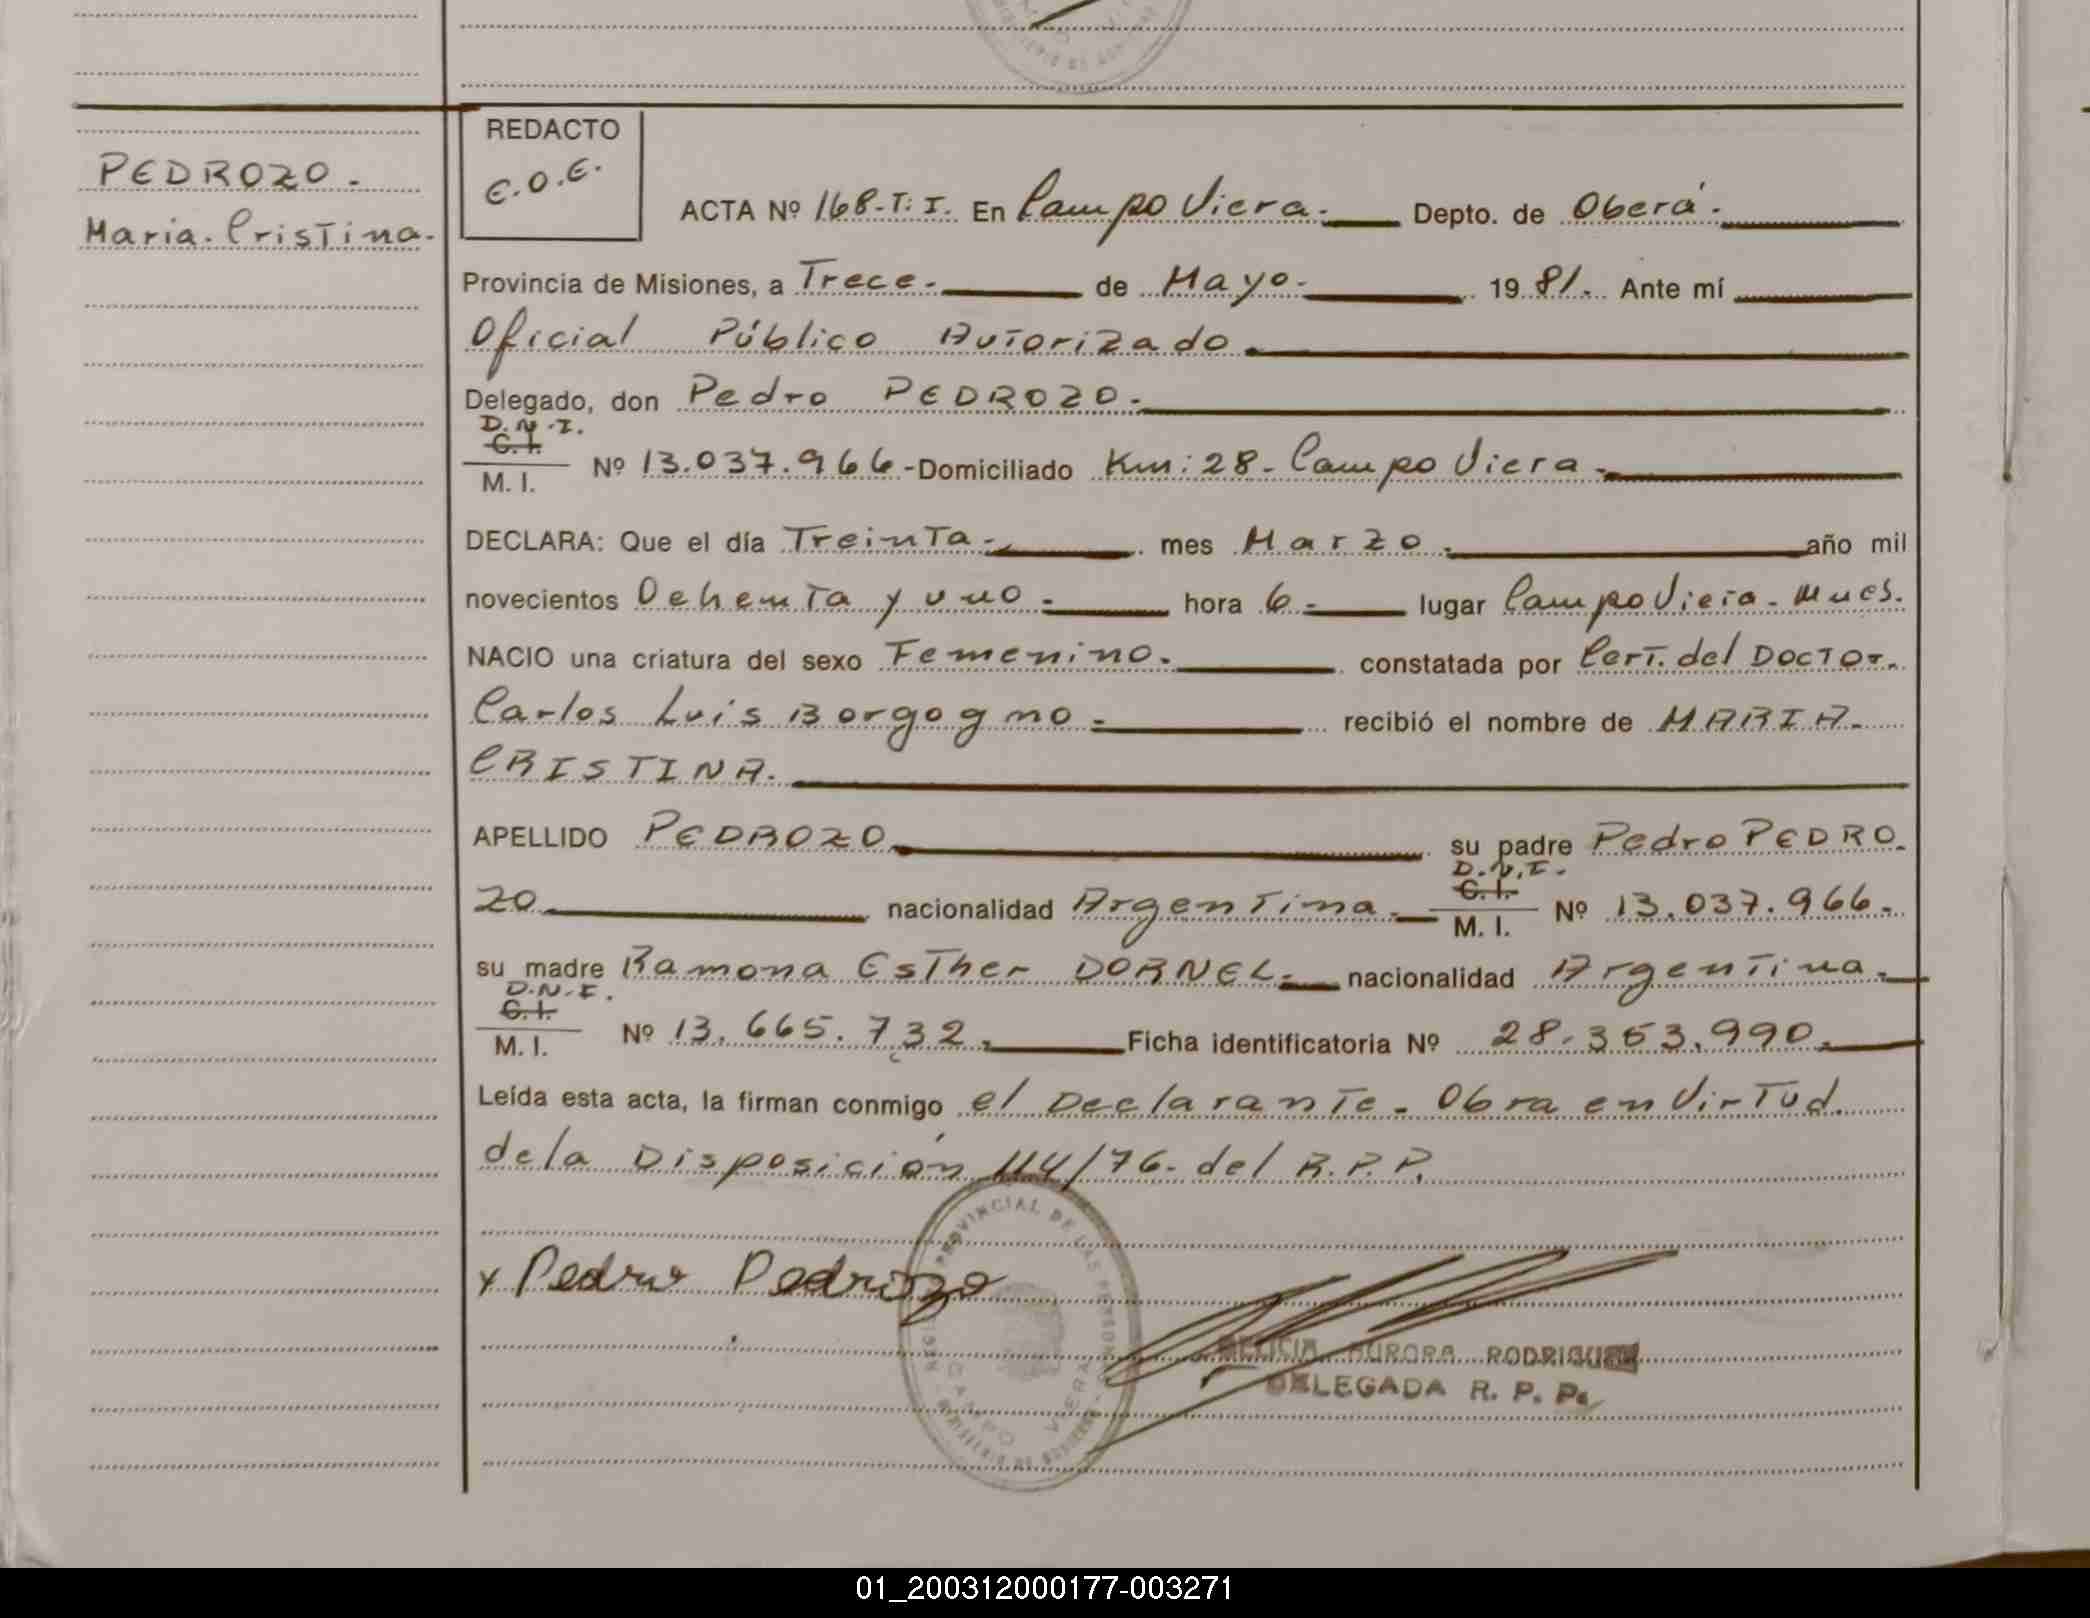 REDACTO
E.O.E.
PEDROZO.
Maria. Cristina.
ACTA Nº 168-T:I. En Campo Viera. Depto. de Oberá.
Provincia de Misiones, a Trece. de Mayo. 1981. Ante mí
Oficial Público Autorizado
Delegado, don Pedro PEDROZO.
D.N.I.
C.I.
M. I. Nº 13.037.966.-Domiciliado Km:28- Campo Viera.
DECLARA: Que el día Treinta. mes Marzo. año mil
novecientos Ochenta y uno. hora 6- lugar Campo Viera-Mnes.
NACIO una criatura del sexo Femenino. constatada por Cert. del Doctor.
Carlos Luis Borgogno. recibió el nombre de MARIA.
CRISTINA.
APELLIDO PEDROZO su padre Pedro PEDRO.
ZO nacionalidad Argentina. D.N.I. C.I. M. I. Nº 13.037.966.
su madre Ramona Esther DORNEL. nacionalidad Argentina.
D.N.I.
C.I.
M. I. Nº 13.665.732. Ficha identificatoria Nº 28.353.990.
Leída esta acta, la firman conmigo el Declarante. Obra en Virtud
de la Disposición 114/76. del R.P.P.
PROVINCIAL DE LAS PERSONAS
CAMPO VIERA
MINISTERIO DE GOBIERNO
x Pedro Pedrozo
AURORA RODRIGUEZ
DELEGADA R. P. P.
01_200312000177-003271